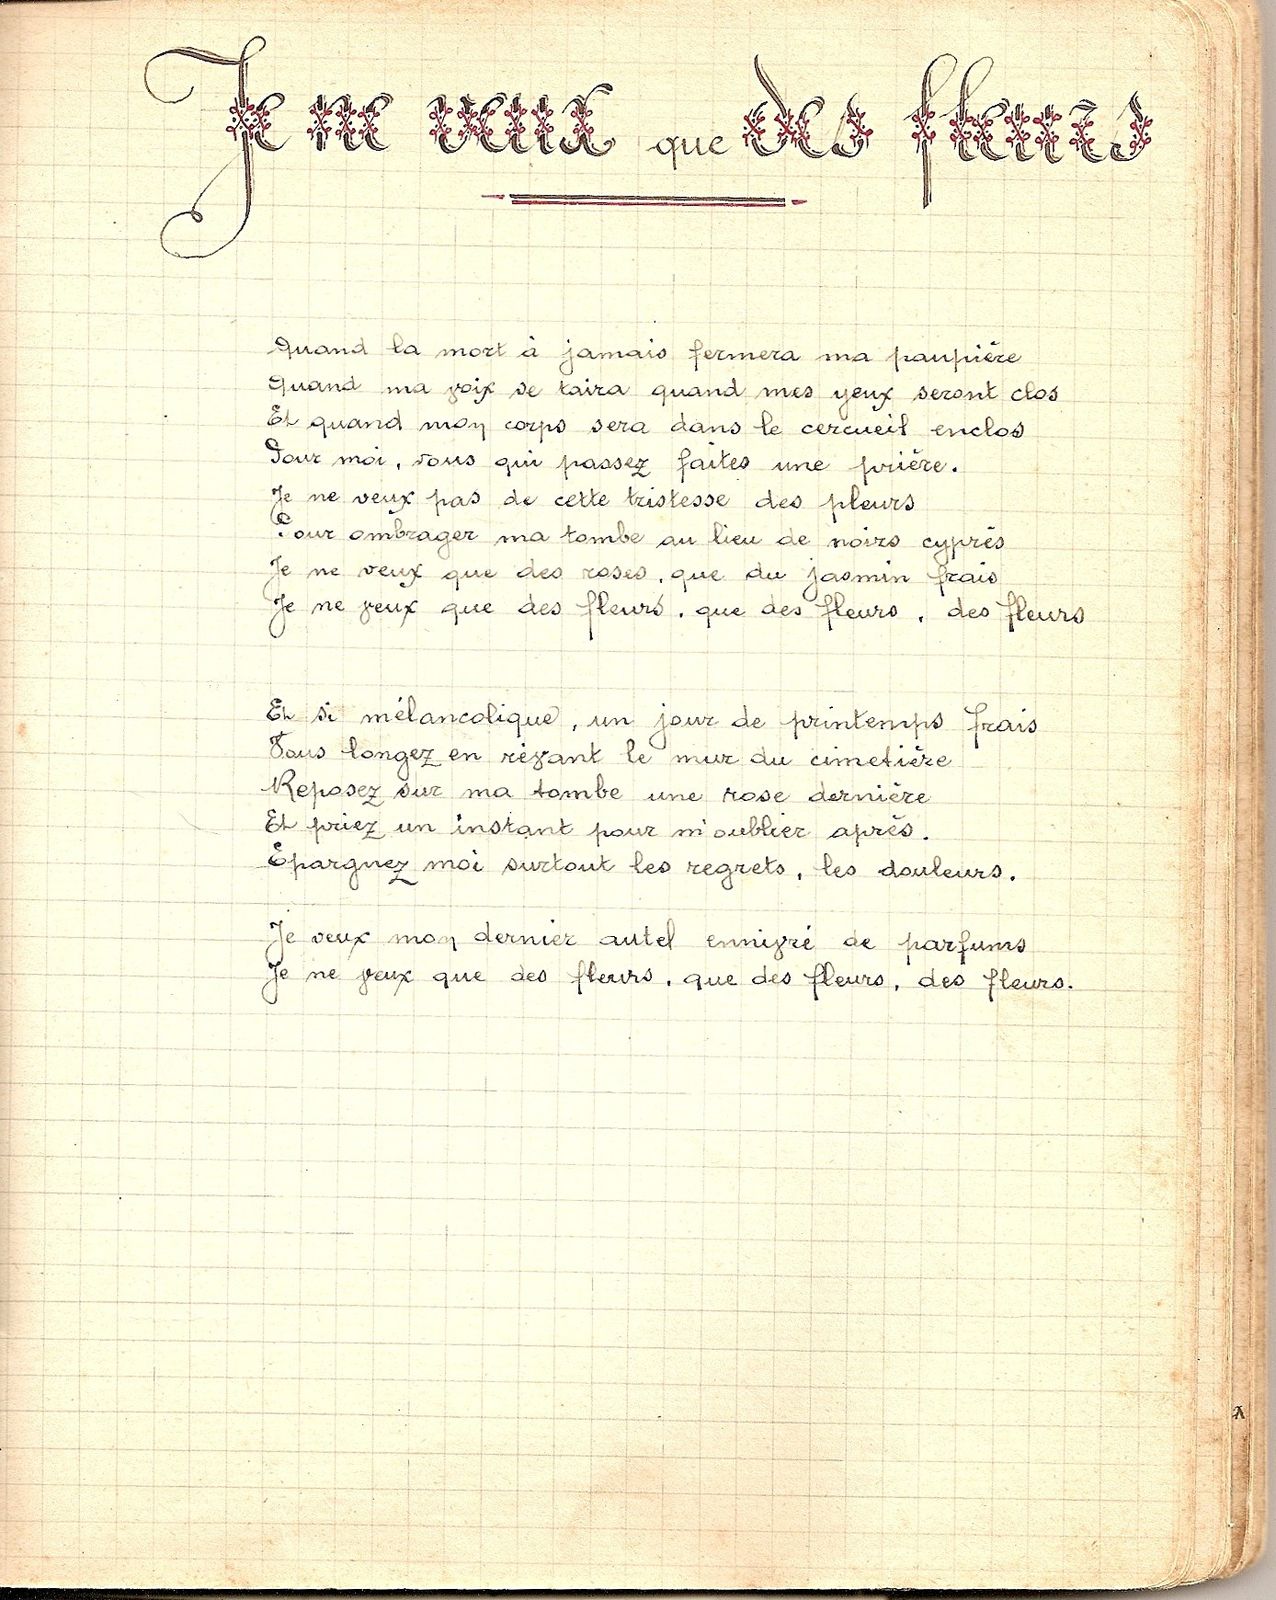 Je ne veux que des fleurs
Quand la mort à jamais fermera ma paupière
Quand ma voix se taira quand mes yeux seront clos
Et quand mon corps sera dans le cercueil enclos
Pour moi, vous qui passez faites une prière.
Je ne veux pas de cette tristesse des pleurs
Pour ombrager ma tombe au lieu de noirs cyprès
Je ne veux que des roses, que du jasmin frais
Je ne veux que des fleurs, que des fleurs, des fleurs
Et si mélancolique, un jour de printemps frais
Vous longez en rêvant le mur du cimetière
Reposez sur ma tombe une rose dernière
Et priez un instant pour m'oublier après.
Epargnez moi surtout les regrets, les douleurs.
Je veux mon dernier autel ennivré de parfums
Je ne veux que des fleurs, que des fleurs, des fleurs.